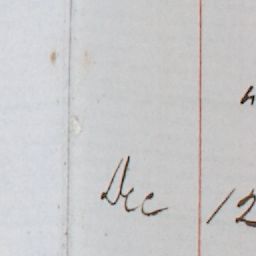 Dec 12